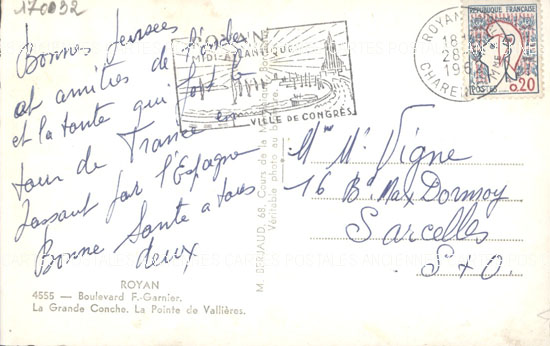 170092
Bonnes pensées
et amitiés de
et la tante qui font le
tour de France en
passant par l'Espagne
Bonne Santé a tous
deux
ROYAN
4555 — Boulevard F.-Garnier.
La Grande Conche. La Pointe de Vallières.
ROYAN
MIDI-ATLANTIQUE
VILLE DE CONGRÈS
M. BERJAUD, 68, Cours de la
Véritable photo au bromure
ROYAN
18
28
196
CHARENTE
REPUBLIQUE FRANÇAISE
POSTES
0,20
Mme Mr Vigne
16 Bd Max Dormoy
Sarcelles
S+O.